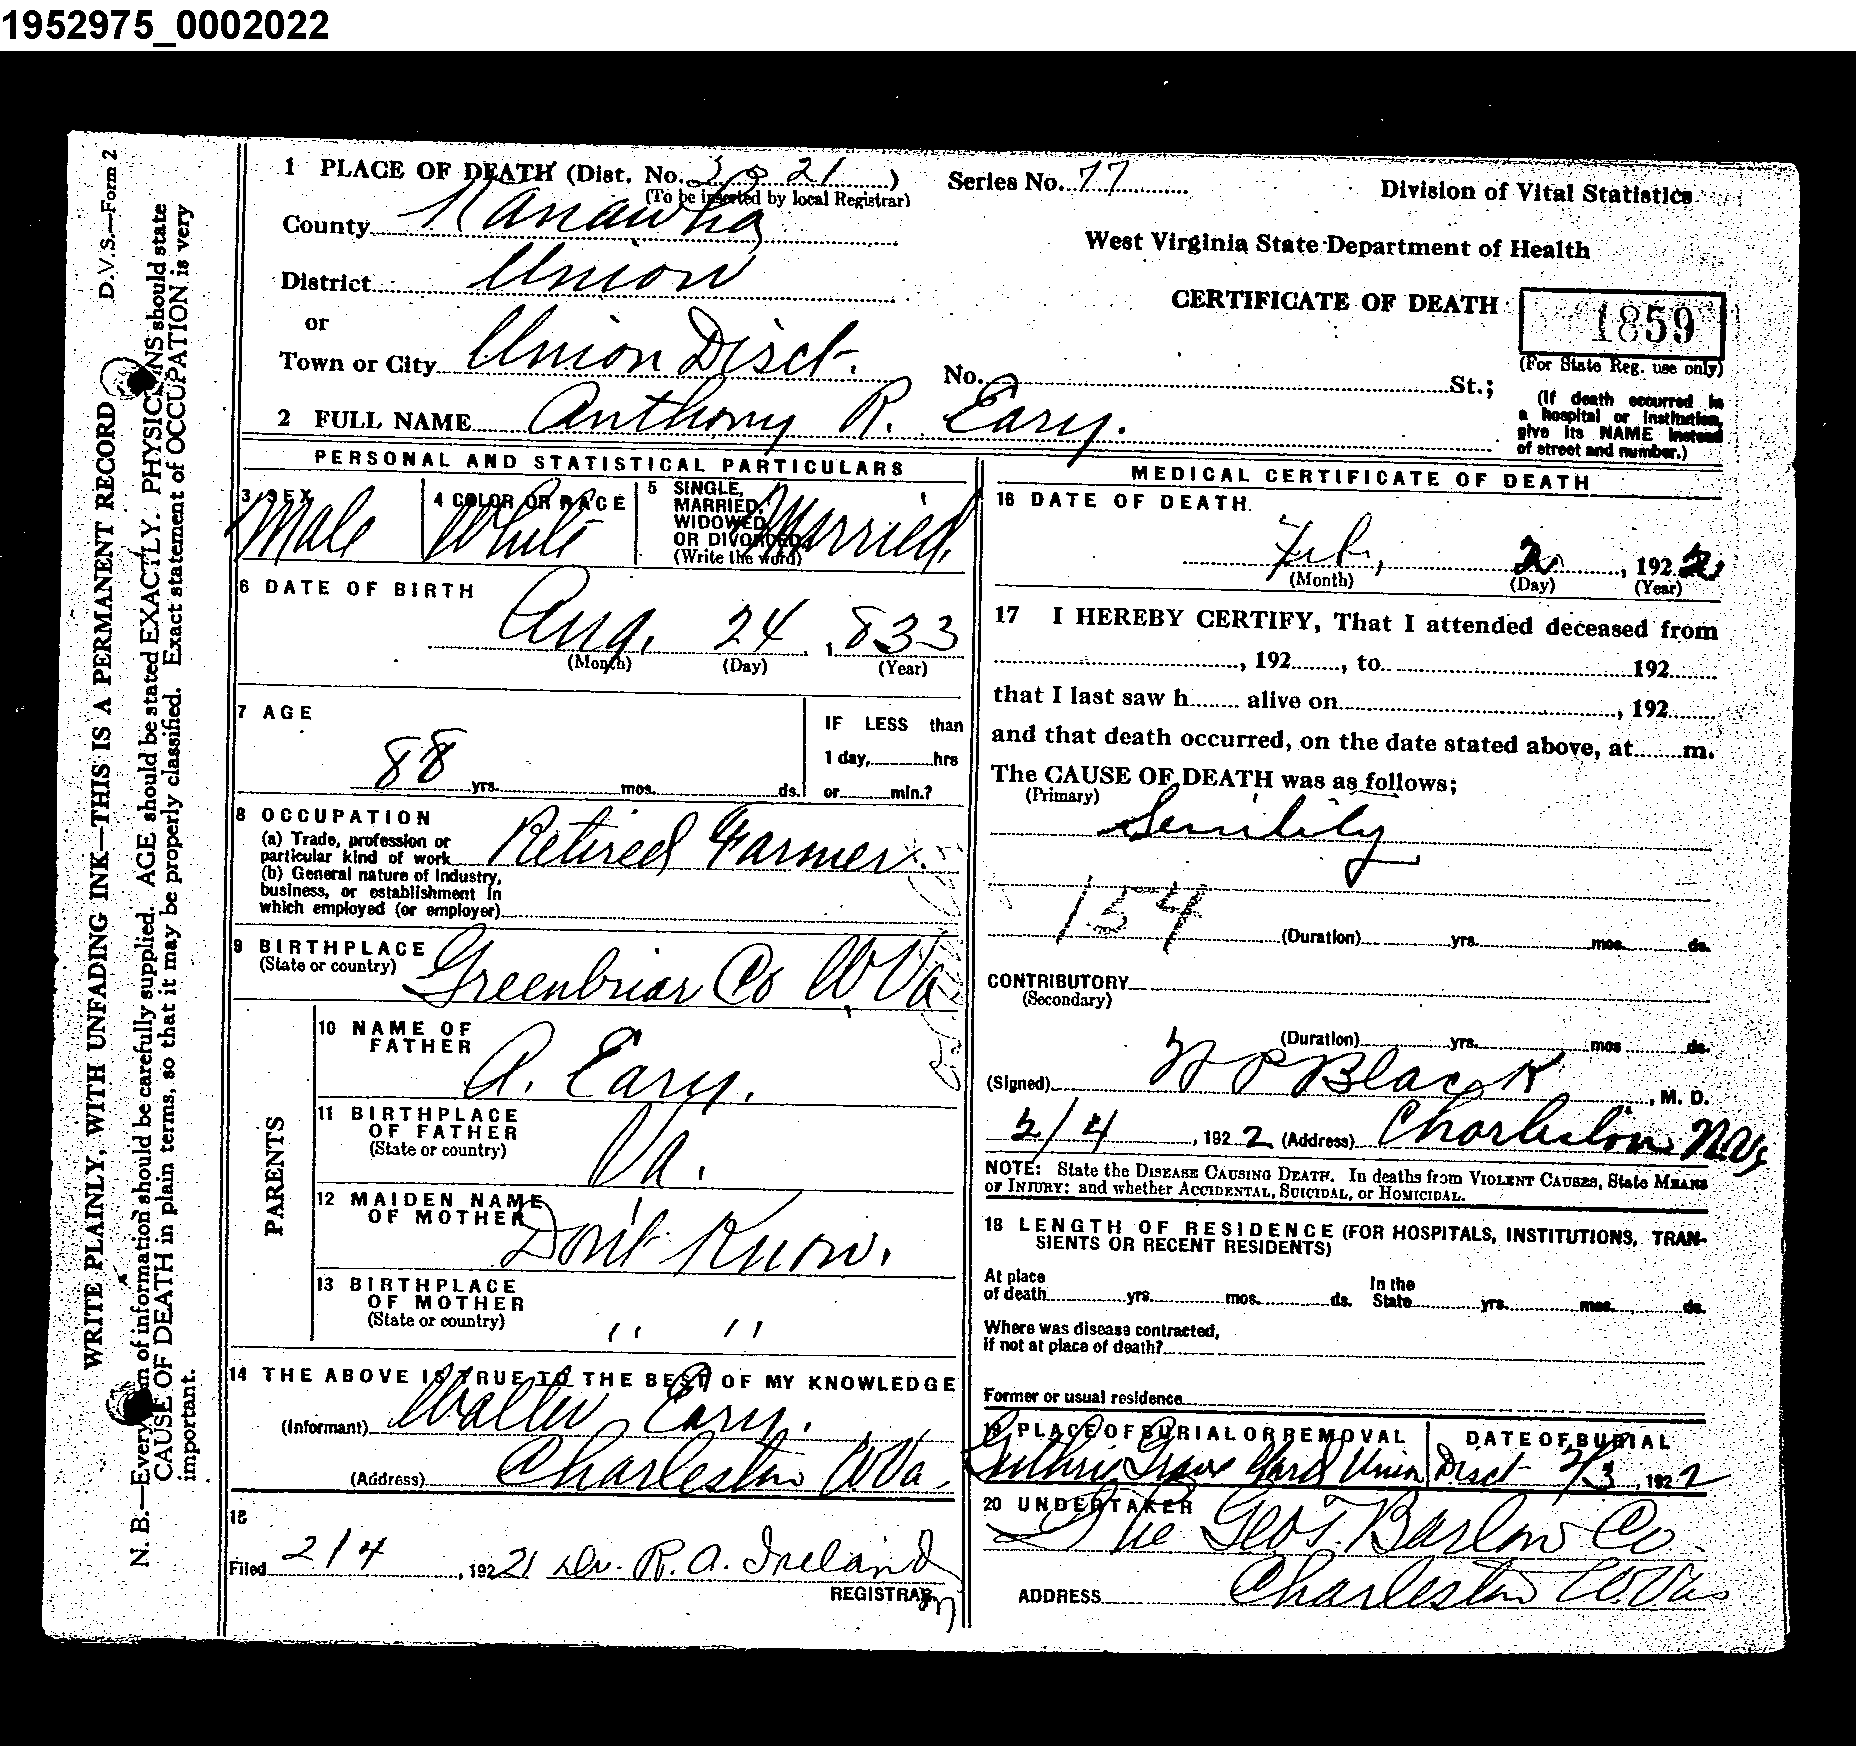 1952975_0002022
D.V.S.—Form 2
WRITE PLAINLY, WITH UNFADING INK—THIS IS A PERMANENT RECORD
N. B.—Every of information should be carefully supplied. AGE should be stated EXACTLY. PHYSICIANS should state
CAUSE OF DEATH in plain terms, so that it may be properly classified. Exact statement of OCCUPATION is very
important.
1 PLACE OF DEATH (Dist. No. 21)
(To be inserted by local Registrar)
Series No. 77
Division of Vital Statistics
County Kanawha
West Virginia State Department of Health
District Union
or
CERTIFICATE OF DEATH
1859
(For State Reg. use only)
Town or City Union Disct.
No. St.;
(If death occurred in
a hospital or institution,
give its NAME instead
of street and number.)
2 FULL NAME Anthony R. Eary.
PERSONAL AND STATISTICAL PARTICULARS
3 SEX
Male
4 COLOR OR RACE
White
5 SINGLE,
MARRIED,
WIDOWED
OR DIVORCED
(Write the word)
Married.
6 DATE OF BIRTH
Aug. 24, 1833
(Month) (Day) (Year)
7 AGE
88 yrs. mos. ds.
IF LESS than
1 day, hrs
or min.?
8 OCCUPATION
(a) Trade, profession or
particular kind of work Retired Farmer.
(b) General nature of Industry,
business, or establishment in
which employed (or employer)
9 BIRTHPLACE
(State or country) Greenbriar Co W.Va
PARENTS
10 NAME OF
FATHER
A. Eary.
11 BIRTHPLACE
OF FATHER
(State or country)
Va.
12 MAIDEN NAME
OF MOTHER
Don't Know.
13 BIRTHPLACE
OF MOTHER
(State or country)
" "
14 THE ABOVE IS TRUE TO THE BEST OF MY KNOWLEDGE
(Informant) Walter Eary.
(Address) Charleston W.Va.
15
Filed 2/4, 192 Dr. R. A. Ireland
REGISTRAR
MEDICAL CERTIFICATE OF DEATH
16 DATE OF DEATH.
Feb, 2, 1922
(Month) (Day) (Year)
17 I HEREBY CERTIFY, That I attended deceased from
, 192, to 192
that I last saw h alive on , 192
and that death occurred, on the date stated above, at m.
The CAUSE OF DEATH was as follows;
(Primary)
Senility
154
(Duration) yrs. mos. ds.
CONTRIBUTORY
(Secondary)
(Duration) yrs. mos ds.
(Signed) W P Black, M. D.
2/4, 1922 (Address) Charleston W.Va
NOTE: State the DISEASE CAUSING DEATH. In deaths from VIOLENT CAUSES, State MEANS
OF INJURY; and whether ACCIDENTAL, SUICIDAL, or HOMICIDAL.
18 LENGTH OF RESIDENCE (FOR HOSPITALS, INSTITUTIONS, TRAN-
SIENTS OR RECENT RESIDENTS)
At place
of death yrs. mos. ds.
In the
State yrs. mos. ds.
Where was disease contracted,
if not at place of death?
Former or usual residence
19 PLACE OF BURIAL OR REMOVAL
Guthrie Grave Yard Union Disct
DATE OF BURIAL
2/3, 1922
20 UNDERTAKER
The Geo T. Barlow Co.
ADDRESS Charleston W.Va